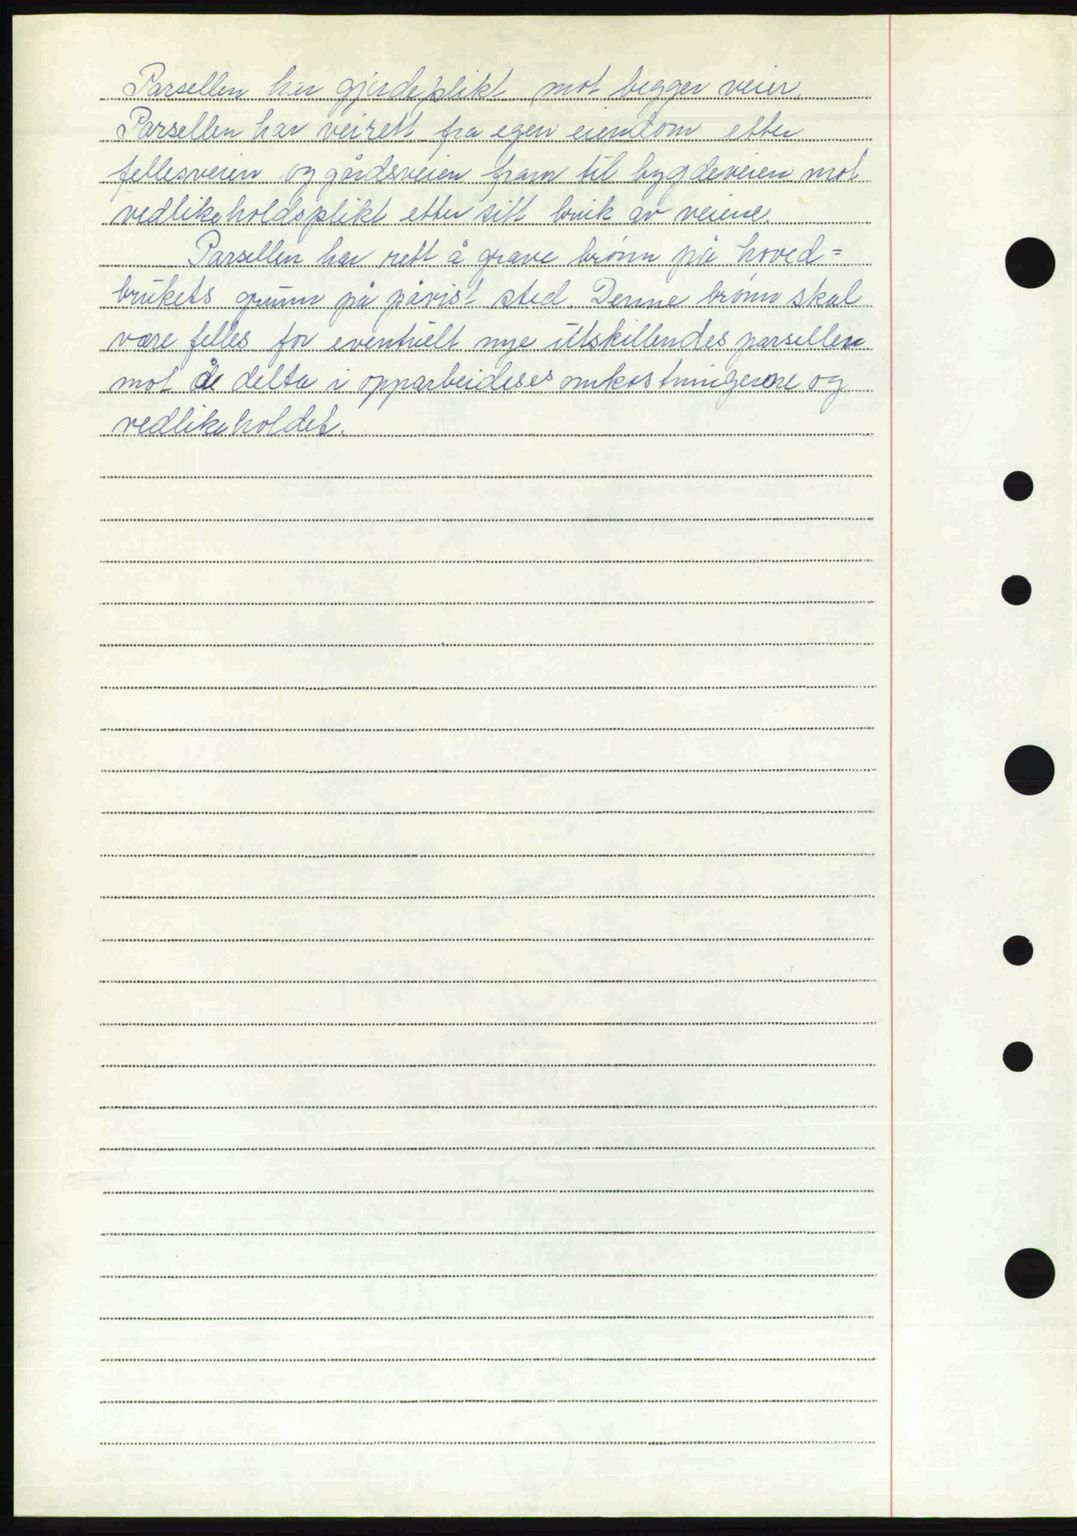 Parsellen har gjerdeplikt mot begger veier.
Parsellen har veirett fra egen eiendom etter
fellesveien og gårdsveien fram til bygdeveien mot
vedlikeholdsplikt etter sitt bruk av veiene.
Parsellen har rett å grave brønn på hoved=
brukets grunn på påvist sted. Denne brønn skal
være felles for eventuelt nye utskillendes parseller
mot å delta i opparbeideses omkostningerne og
vedlikeholdet.